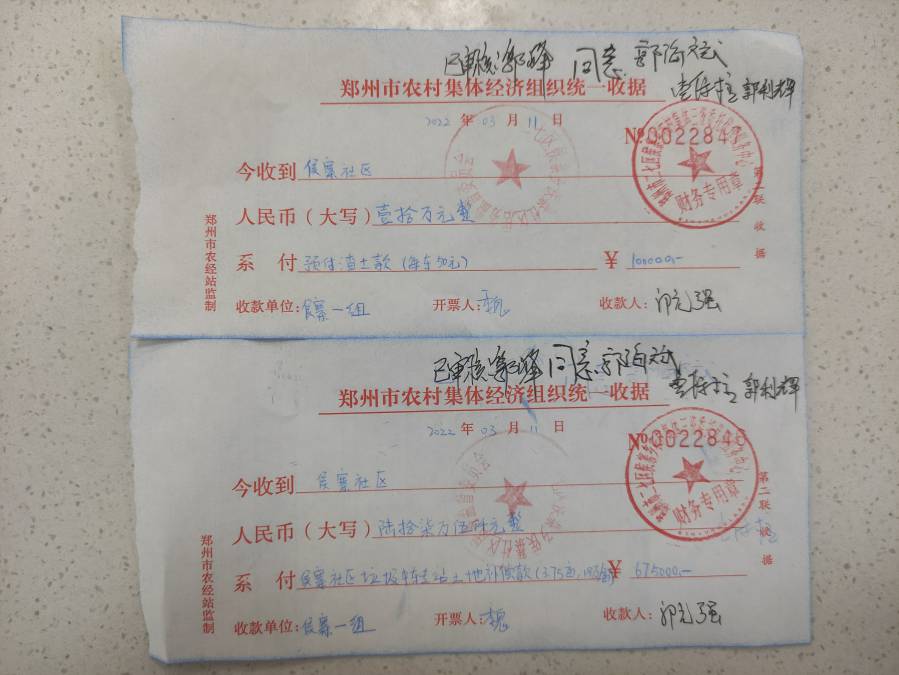 已审核 同意
郑州市农村集体经济组织统一收据
2022 年 03 月 11 日
№002284
今收到 侯寨社区
人民币（大写）壹拾万元整
系 付 预付渣土款（每车50元） ￥ 100000,-
收款单位：侯寨一组 开票人： 收款人：
郑州市农经站监制
第二联 收据
财务专用章
已审核 同意 郭利辉
郑州市农村集体经济组织统一收据
2022 年 03 月 11 日
№0022846
今收到 侯寨社区
人民币（大写）陆拾柒万伍仟元整
系 付 侯寨社区垃圾中转站土地补偿款（3.75亩， ￥ 675000,-
收款单位：侯寨一组 开票人： 收款人：
郑州市农经站监制
第二联 收据
财务专用章